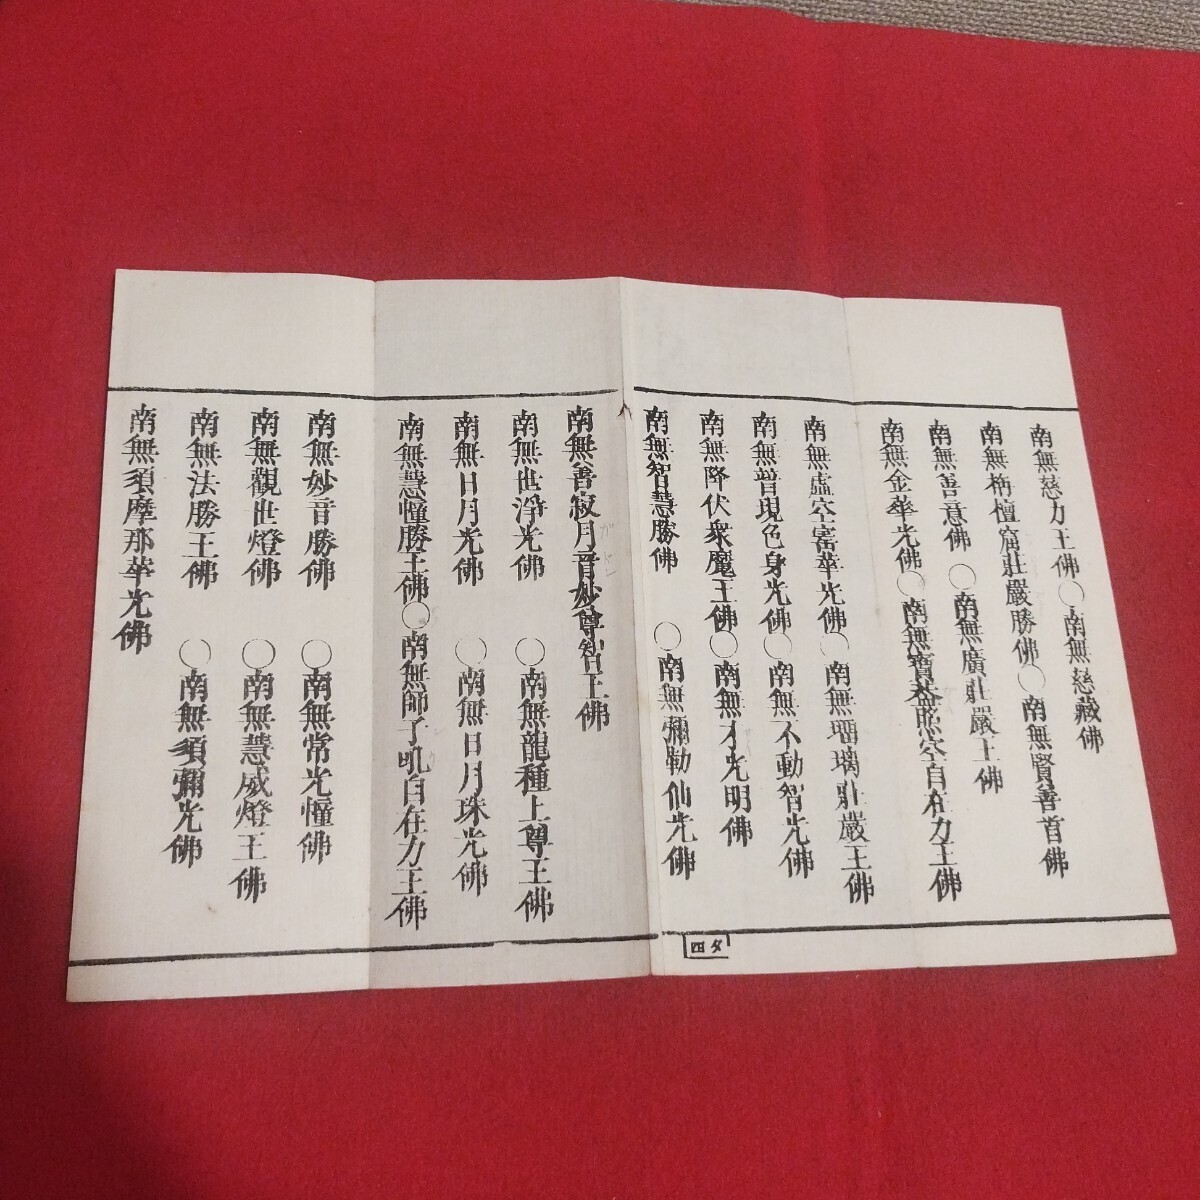 南無慈力王佛〇南無慈藏佛
南無栴檀窟莊嚴勝佛〇南無賢善首佛
南無善意佛〇南無廣莊嚴王佛
南無金華光佛〇南無寶蓋照空自在力王佛
南無虛空寶華光佛〇南無瑠璃莊嚴王佛
南無普現色身光佛〇南無不動智光佛
南無降伏衆魔王佛〇南無才光明佛
南無智慧勝佛〇南無彌勒仙光佛
南無善寂月音妙尊智王佛
南無世淨光佛〇南無龍種上尊王佛
南無日月光佛〇南無日月珠光佛
南無慧幢勝王佛〇南無師子吼自在力王佛
南無妙音勝佛〇南無常光幢佛
南無觀世燈佛〇南無慧威燈王佛
南無法勝王佛〇南無須彌光佛
南無須摩那華光佛
夕四